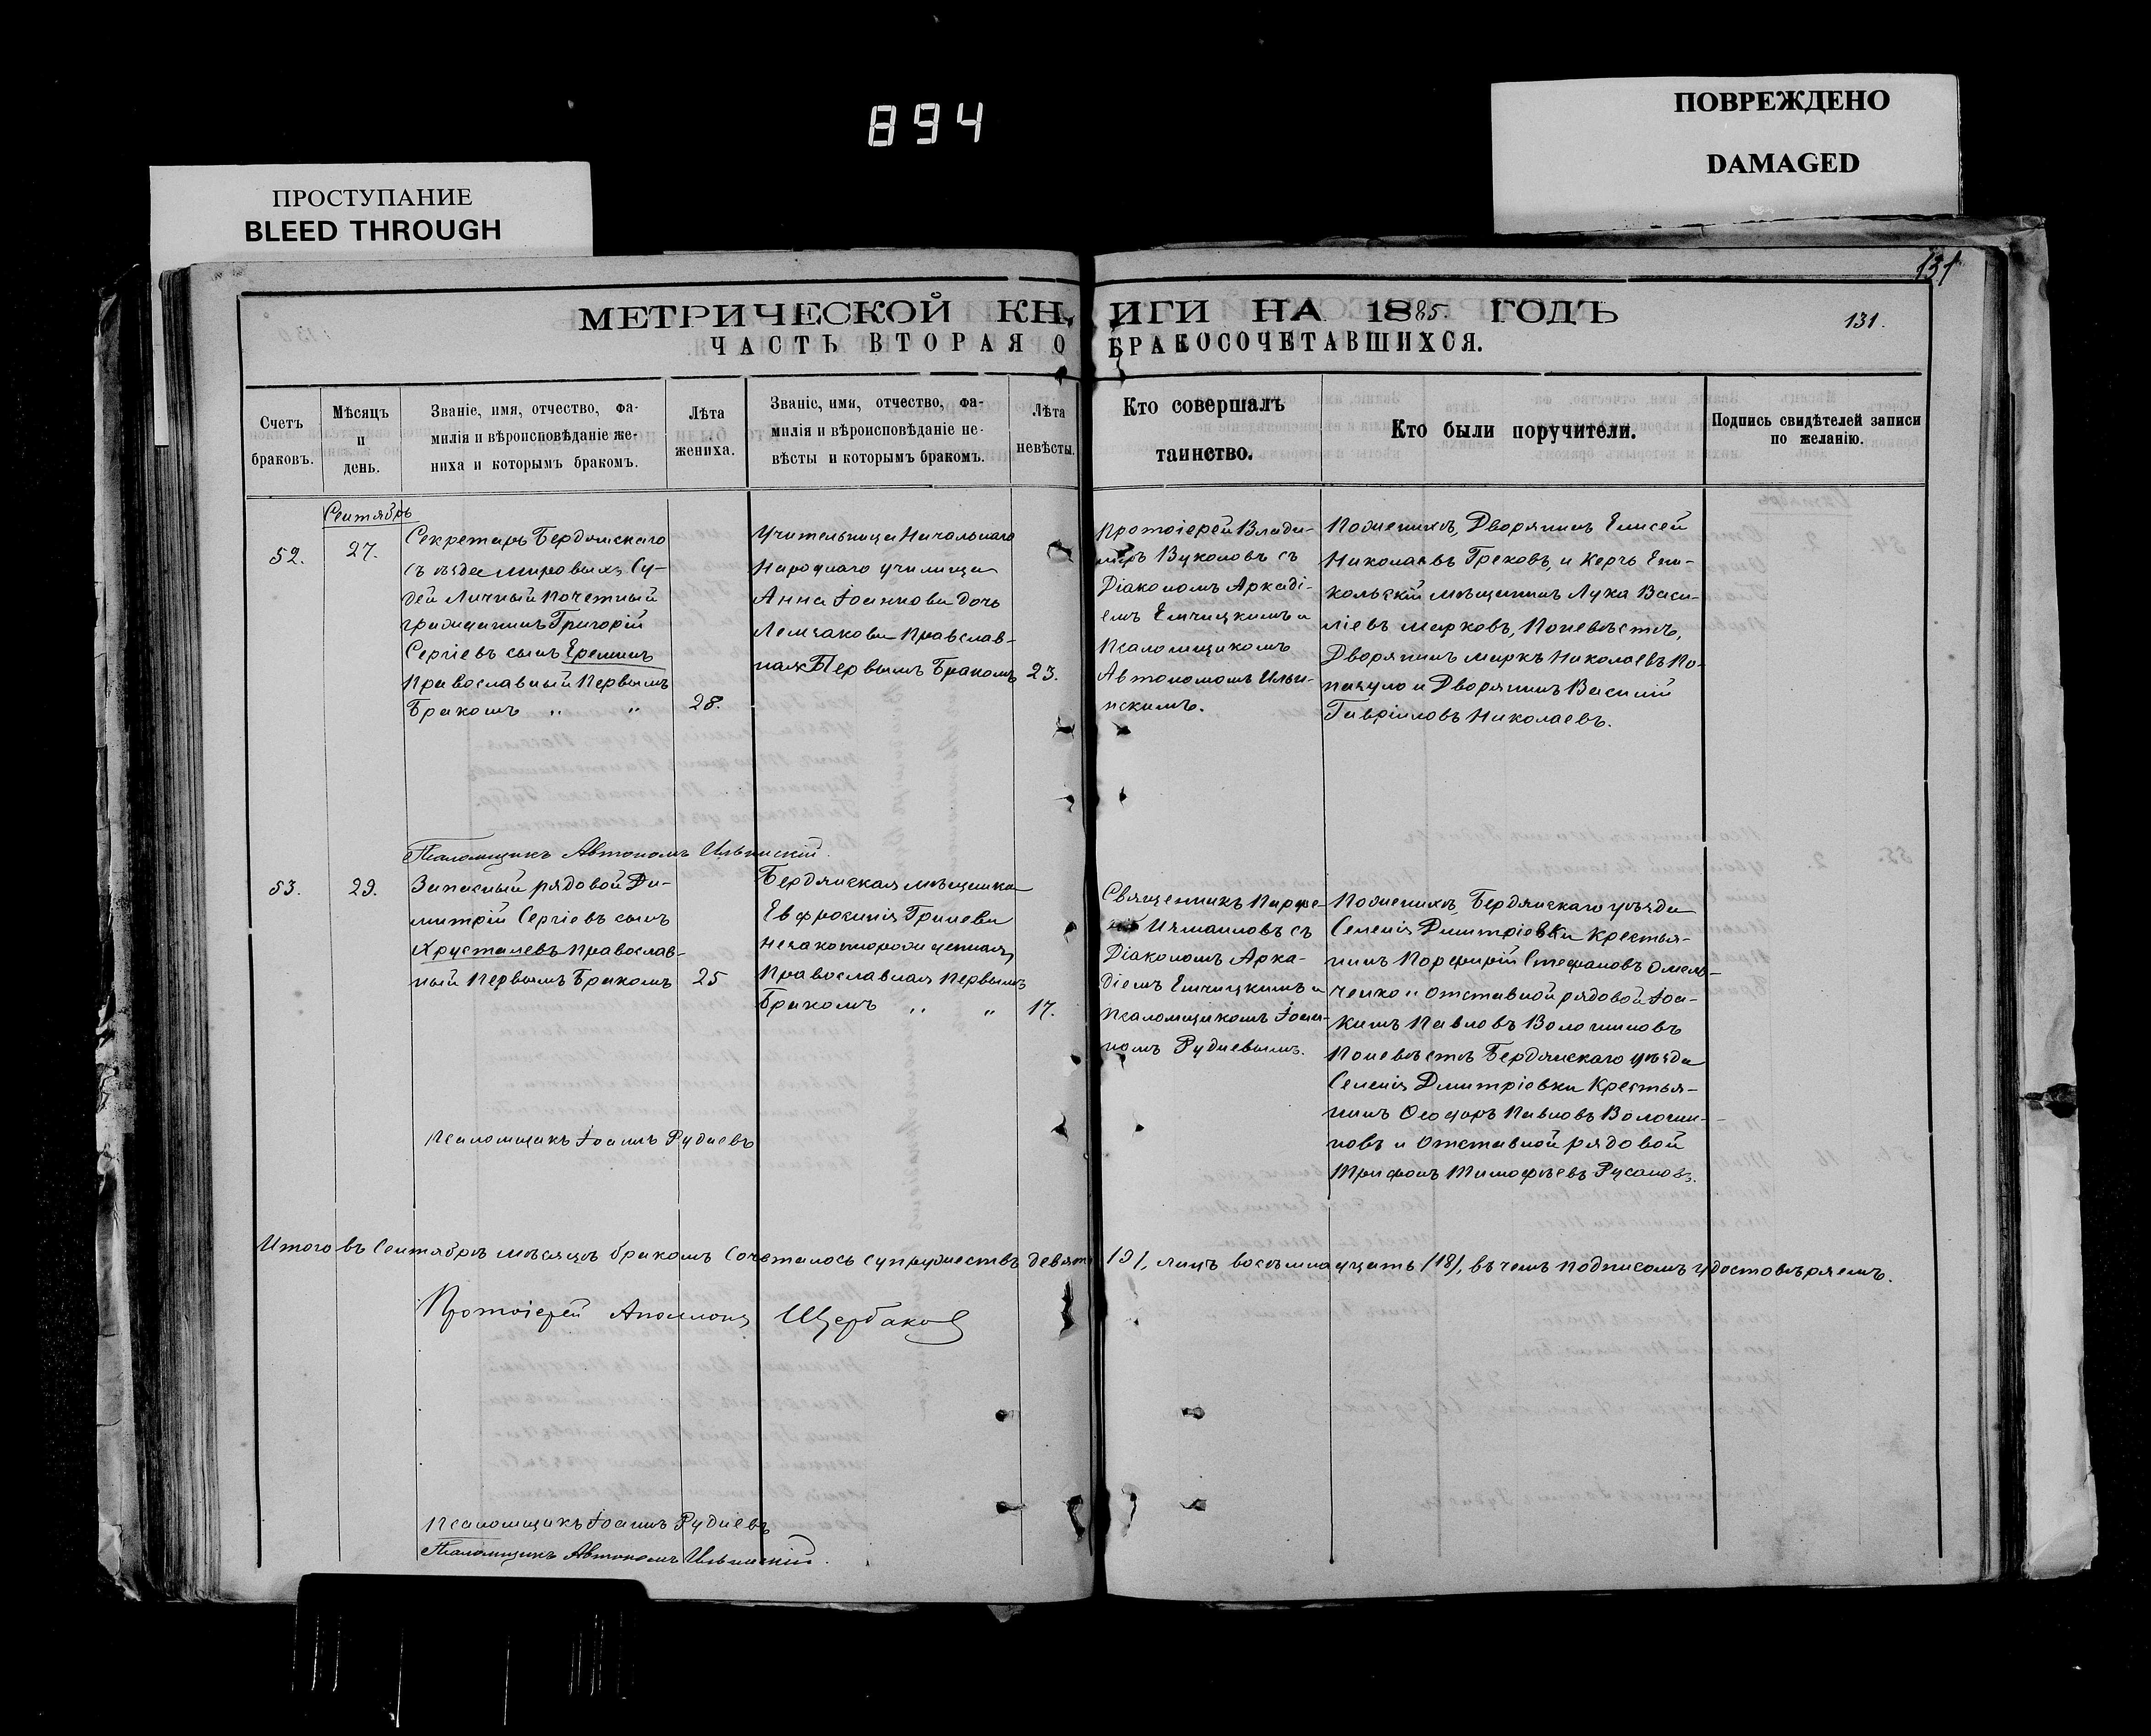 894
ПРОСТУПАНИЕ
BLEED THROUGH
ПОВРЕЖДЕНО
DAMAGED
131
МЕТРИЧЕСКОЙ КНИГИ НА 1885. ГОДЪ
131.
ЧАСТЬ ВТОРАЯ О БРАКОСОЧЕТАВШИХСЯ.
Счетъ
браковъ.
Мѣсяцъ
и
день.
Званіе, имя, отчество, фа-
милія и вѣроисповѣданіе же-
ниха и которымъ бракомъ.
Лѣта
жениха.
Званіе, имя, отчество, фа-
милія и вѣроисповѣданіе не-
вѣсты и которымъ бракомъ.
Лѣта
невѣсты.
Кто совершалъ
таинство.
Кто были поручители.
Подпись свидѣтелей записи
по желанію.
Сентябрь
52.
27.
Секретарь Бердянскаго
съѣзда мировыхъ Су-
дей Личный Почетный
гражданинъ Григорій
Сергіевъ сынъ Ереминъ
Православный Первымъ
Бракомъ „ „
28.
Учительница Начальнаго
Народнаго училища
Анна Іоаннова дочь
Православ-
ная Первымъ Бракомъ
23.
Протоіерей Влади-
міръ Вуколовъ съ
Діакономъ Аркаді-
емъ Емчицкимъ и
Псаломщикомъ
Автономомъ Ильи-
нскимъ.
Поженихѣ, Дворянинъ Елисей
Николаевъ Грековъ, и Керчь Ени-
кольскій мѣщанинъ Лука Васи-
ліевъ Марковъ, Поневѣстѣ,
Дворянинъ Маркъ Николаевъ По-
и Дворянинъ Василій
Гавріиловъ Николаевъ.
Псаломщикъ Автономъ Ильинскій.
53.
29.
Запасный рядовой Ди-
митрій Сергіевъ сынъ
Хрусталевъ Православ-
ный Первымъ Бракомъ
25
Бердянская мѣщанка
Евфросинія Гришева
незаконнорожденная
Православная Первымъ
Бракомъ „ „
17.
Священникъ Парфе-
ній Измаиловъ съ
Діакономъ Арка-
діемъ Емчицкимъ и
Псаломщикомъ Іоан-
номъ Рудневымъ.
Поженихѣ, Бердянскаго уѣзда
Селенія Димитріевки Крестья-
нинъ Порфирій Стефановъ Омель-
ченко и Отставной рядовой Іоа-
кимъ Павловъ Волошиновъ
Поневѣстѣ Бердянскаго уѣзда
Селенія Дмитріевки Крестья-
нинъ Ѳеодоръ Павловъ Волоши-
новъ и Отставной рядовой
Трифонъ Тимофѣевъ Русановъ.
Псаломщикъ Іоаннъ Рудневъ
Итого въ Сентябрѣ мѣсяцѣ бракомъ сочеталось супружествъ девять /9/, лицъ восемнадцать /18/, въ чемъ подписомъ удостовѣряемъ.
Протоіерей Аполлонъ Щербаковъ
Псаломщикъ Іоаннъ Рудневъ
Псаломщикъ Автономъ Ильинскій.